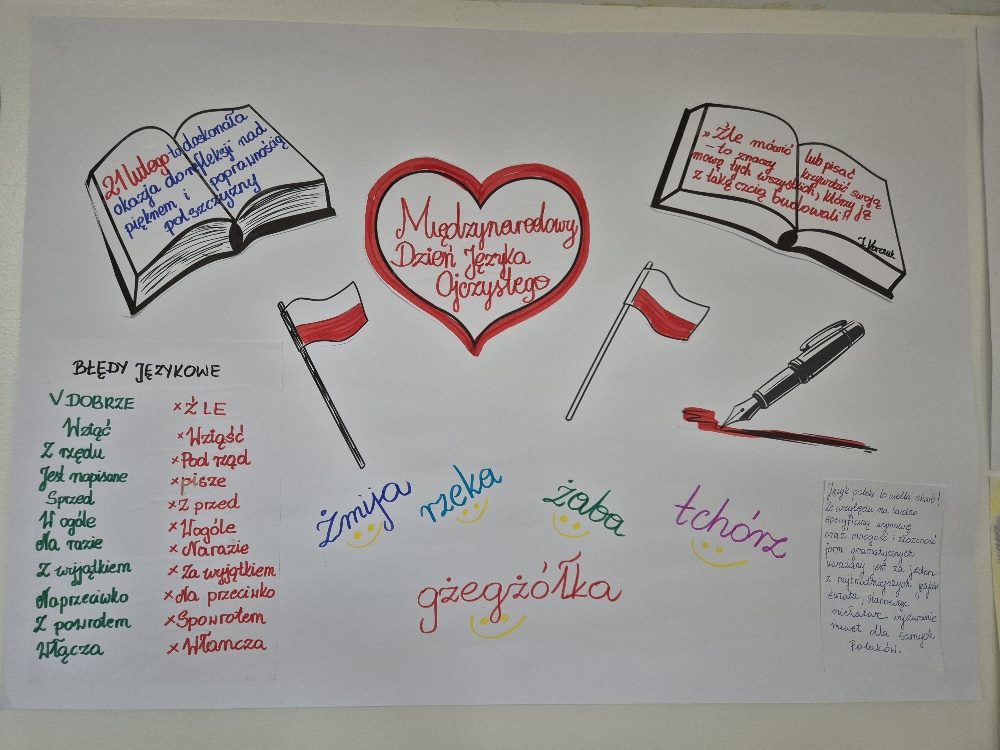 21 lutego to doskonała
okazja do refleksji nad
pięknem i poprawnością
polszczyzny
Międzynarodowy
Dzień Języka
Ojczystego
"Źle mówić lub pisać
- to znaczy krzywdzić swoją
mowę tych wszystkich, którzy ją
z taką czcią budowali."
J. Korczak
BŁĘDY JĘZYKOWE
V DOBRZE × ŹLE
Wziąć × Wziąść
Z rzędu × Pod rząd
Jest napisane × pisze
Sprzed × Z przed
W ogóle × Wogóle
Na razie × Narazie
Z wyjątkiem × Za wyjątkiem
Naprzeciwko × Na przeciwko
Z powrotem × Spowrotem
Włącza × Włancza
żmija rzeka żaba tchórz
gżegżółka
Język polski to wielki skarb!
Ze względu na bardzo
specyficzną wymowę
oraz mnogość i złożoność
form gramatycznych
uważany jest za jeden
z najtrudniejszych języków
świata, stanowiąc
niełatwe wyzwanie
nawet dla samych
Polaków.